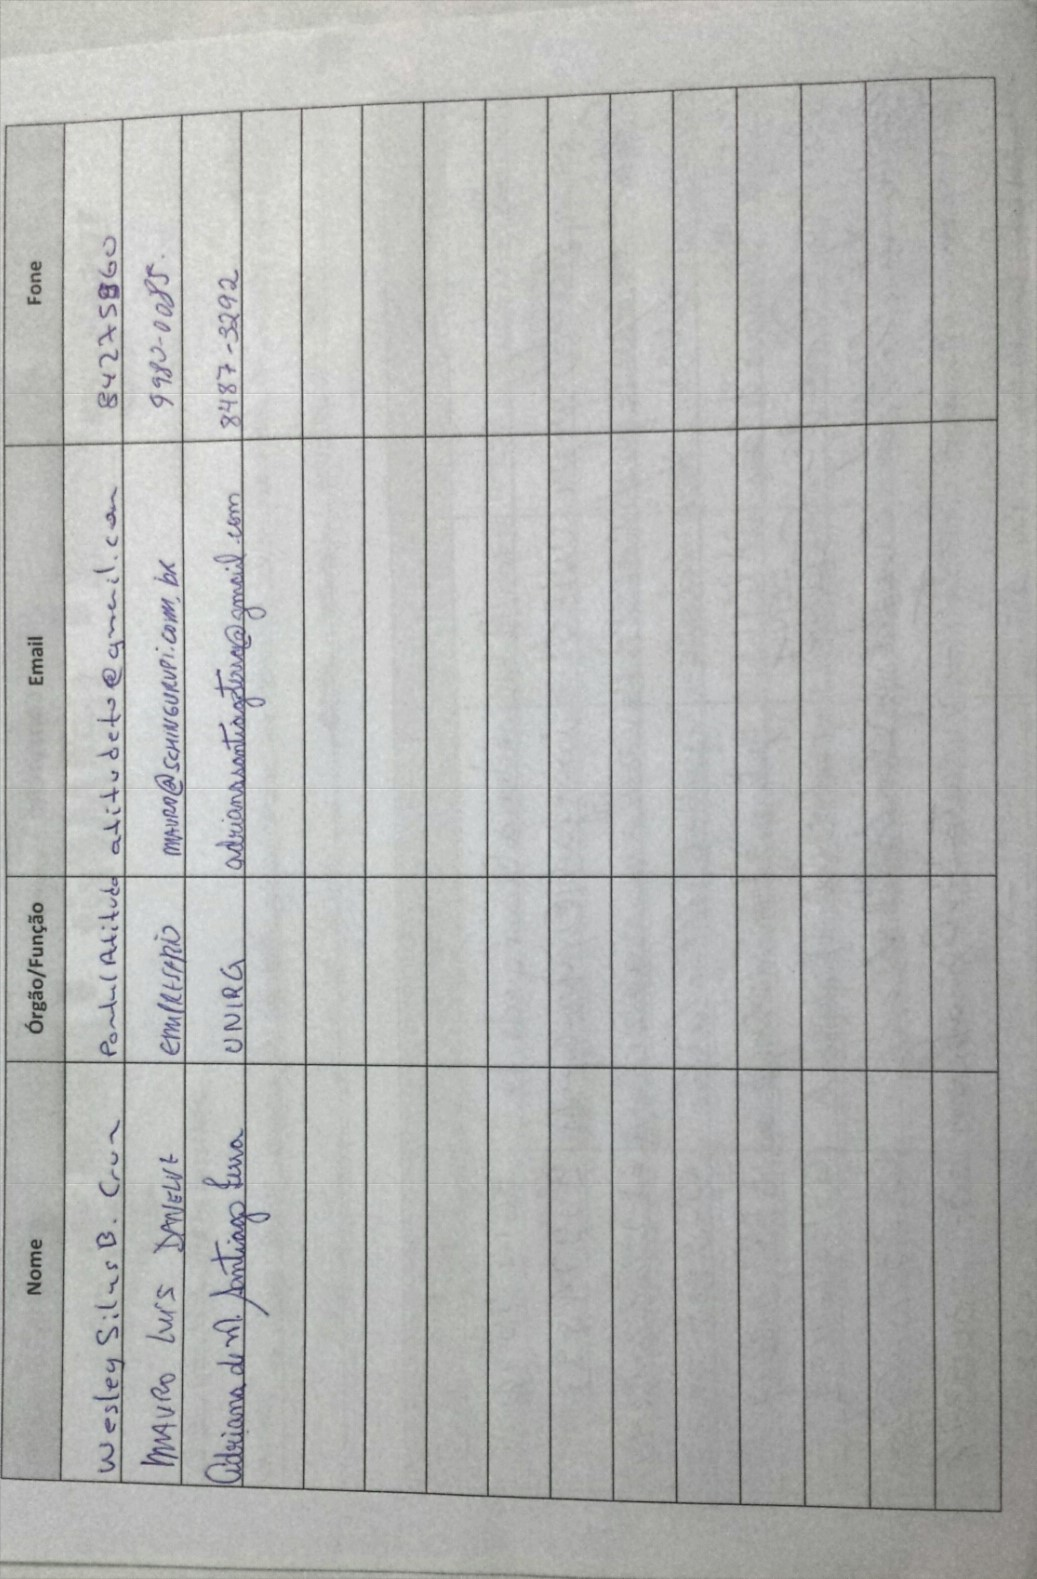 Nome Órgão/Função Email Fone
Wesley Silas B. Cruz Portal Atitude atitudeto@gmail.com 84275860
MAURO LUIS DANELVE EMPRESARIO MAURO@SCHINGURUPI.COM.BR 9980-0085.
Adriana de M. Santiago Terra UNIRG adrianasantiagoterra@gmail.com 8487-3292